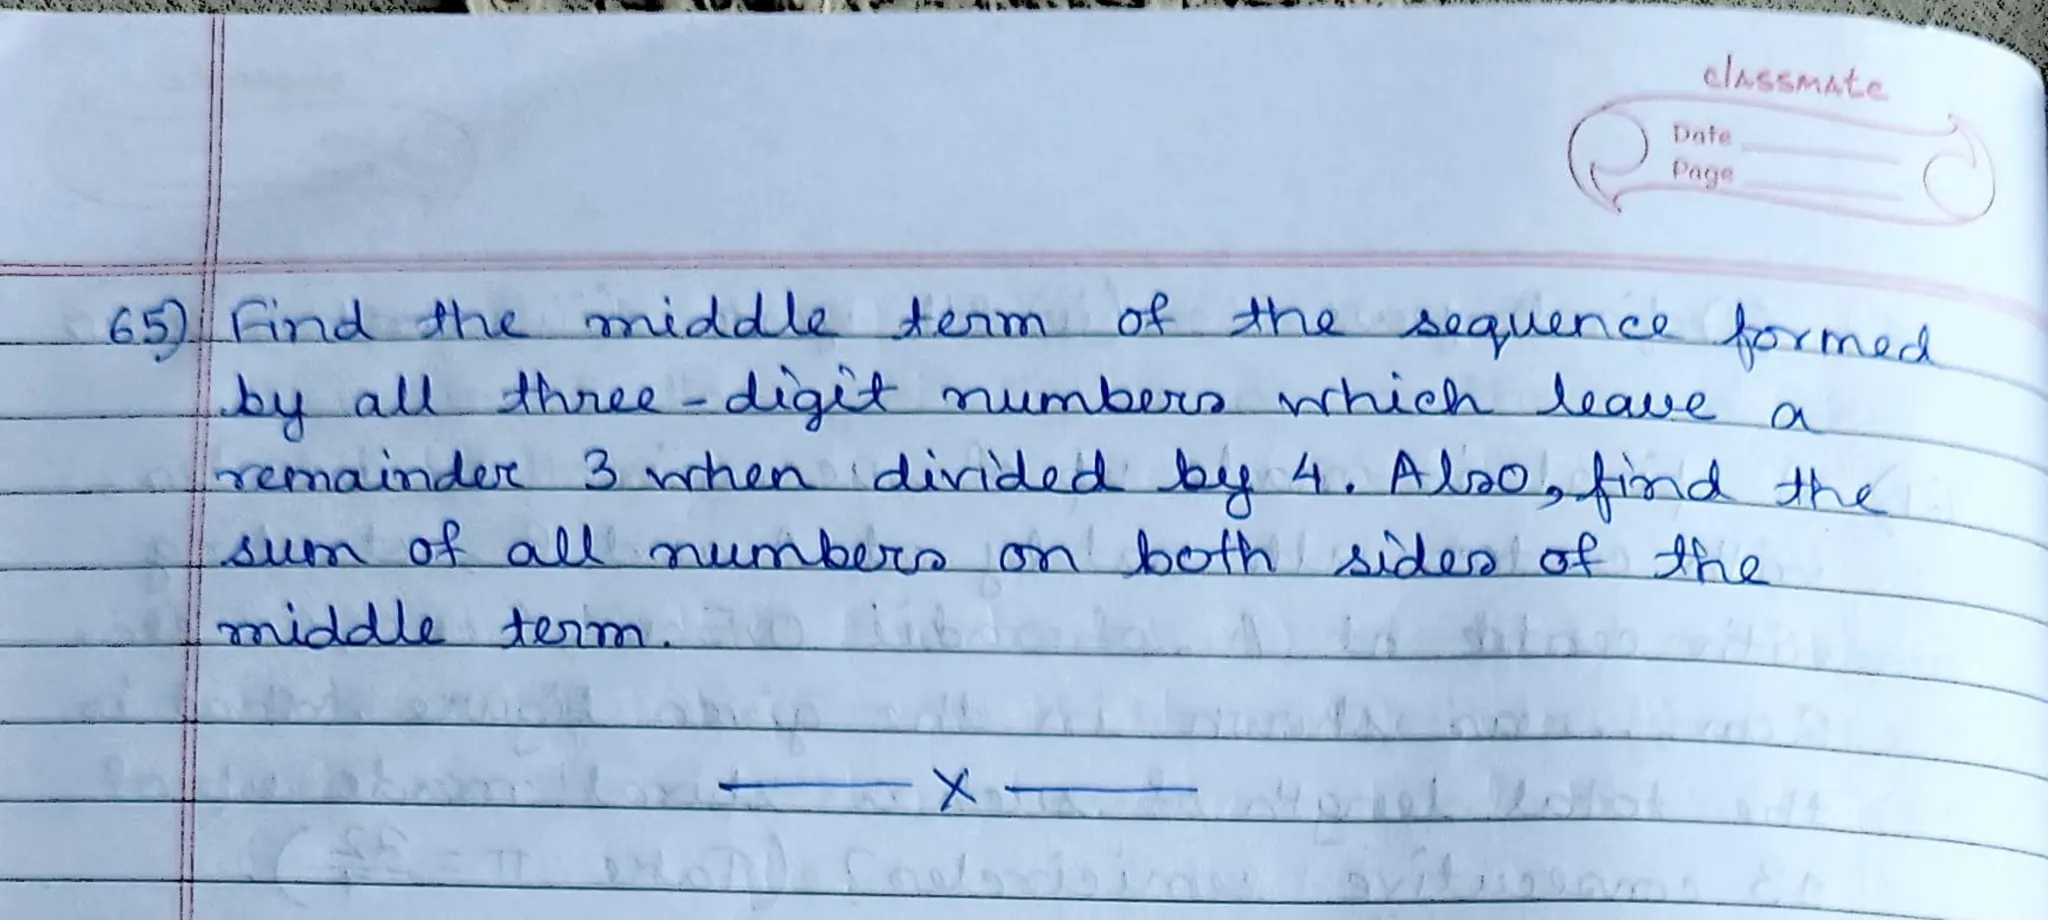 classmate
Date
Page
65) Find the middle term of the sequence formed
by all three-digit numbers which leave a
remainder 3 when divided by 4. Also, find the
sum of all numbers on both sides of the
middle term.
—— X ——